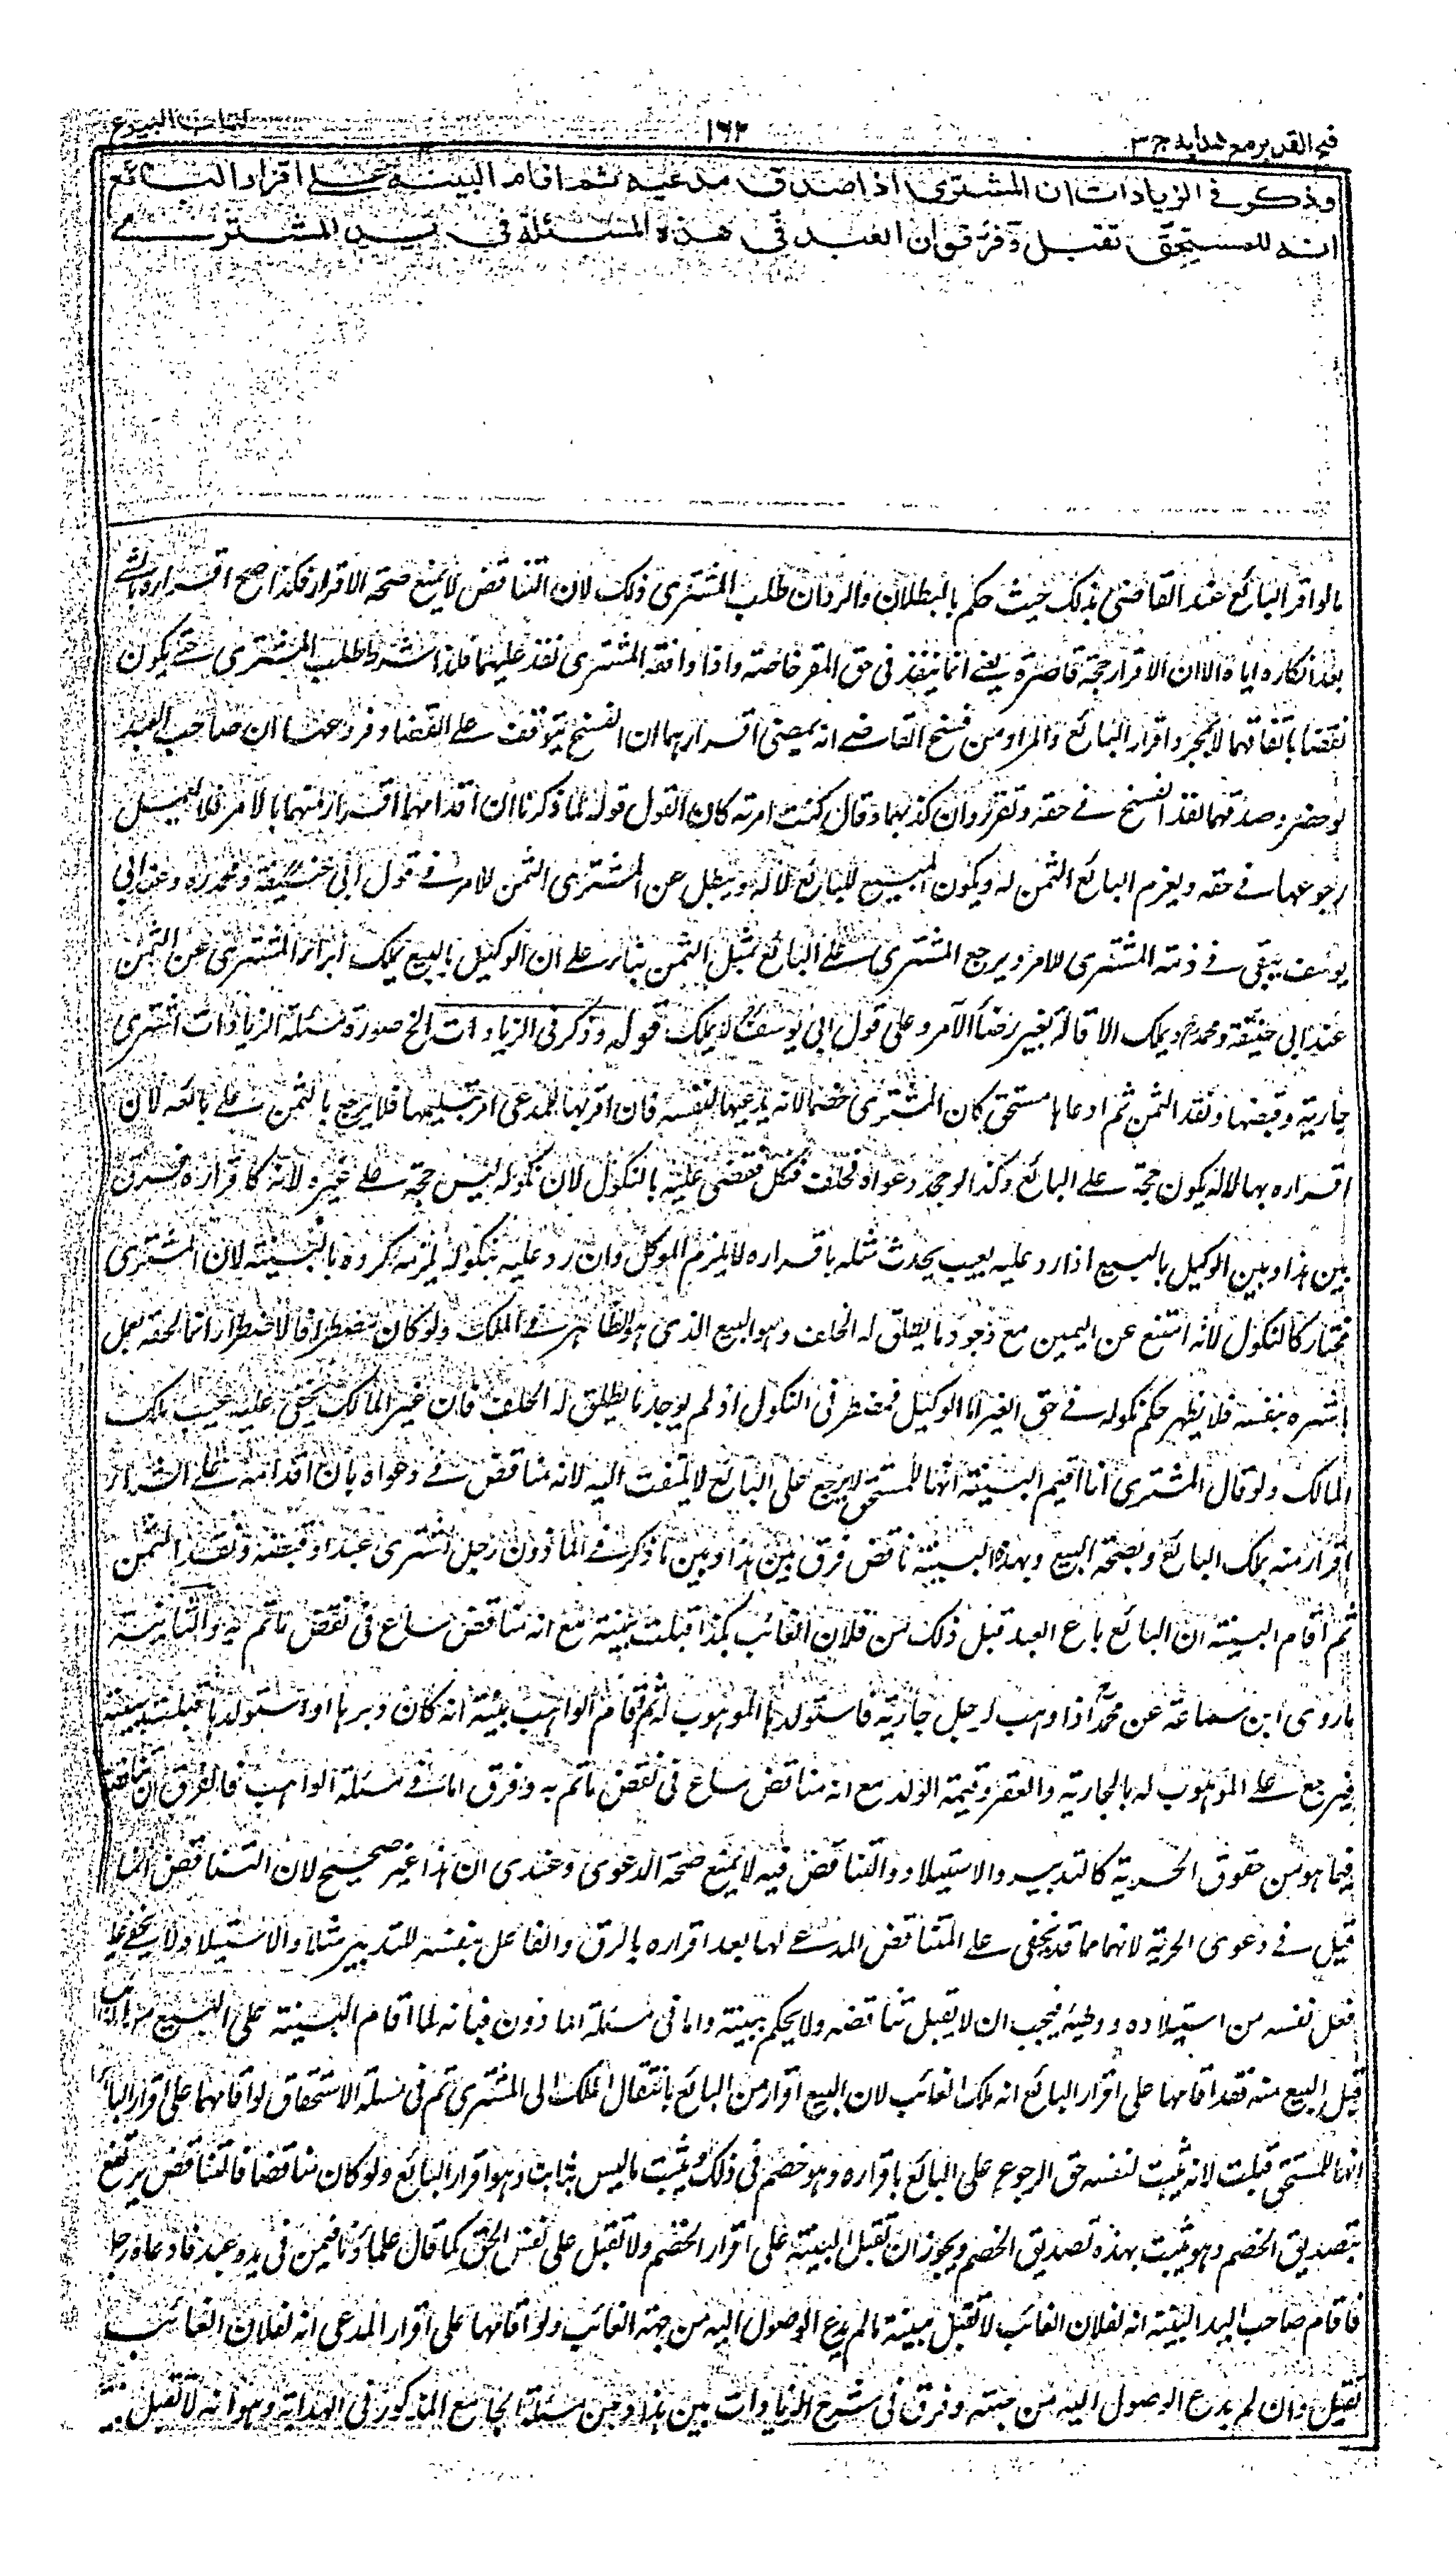 فتح القدير مع هدايه ج ٣
١٦٣
كتاب البيوع
وذكر في الزيادات ان المشتري اذا صدق مدعيه ثم اقام البينة على اقرار البائع
انه للمستحق تقبل وفرقوا ان العبد في هذه المسئلة في يد المشتري
ما لو اقر البائع عند القاضي بذلك حيث حكم بالبطلان والرد ان طلب المشتري ذلك لان التناقض لا يمنع صحة الاقرار فكذا صح اقراره بالشي
بعد انكاره اياه الا ان الاقرار حجة قاصرة يعني انما ينفذ في حق المقر خاصة واذا وافقه المشتري نفذ عليهما فلذا شرط طلب المشتري حتى يكون
نقضا باتفاقهما لا بمجرد اقرار البائع والمراد من فسخ القاضي انه يمضي اقرارهما ان الفسخ يتوقف على القضا وفروعها ان صاحب العبد
لو حضر وصدقهما نفذ الفسخ في حقه وتقرر وان كذبهما وقال كنت امرته كان القول قوله لما ذكرنا ان اقدامهما اقرار منهما بالامر فلا يعمل
رجوعهما في حقه ويغرم البائع الثمن له ويكون المبيع للبائع لا له ويبطل عن المشتري الثمن للامر في قول ابي حنيفة ومحمد ره وعند ابي
يوسف يبقى في ذمة المشتري للامر ويرجع المشتري على البائع بمثل الثمن بناء على ان الوكيل بالبيع يملك ابراء المشتري عن الثمن
عند ابي حنيفة ومحمد ويملك الاقالة بغير رضا الآمر وعلى قول ابي يوسف لا يملك قوله وذكر في الزيادات الخ صورة مسئلة الزيادات اشترى
جارية وقبضها ونقد الثمن ثم ادعاها مستحق كان المشتري خصما لانه يدعيها لنفسه فان اقر بها للمدعي امر بتسليمها فلا يرجع بالثمن على بائعه لان
اقراره بها لا يكون حجة على البائع وكذا لو جحد دعواه فحلف فنكل فقضى عليه بالنكول لان نكوله ليس حجة على غيره لانه كاقراره فرق
بين هذا وبين الوكيل بالبيع اذا رد عليه بعيب يحدث مثله باقراره لا يلزم الموكل وان رد عليه بنكوله لزمه كرده بالبينة لان المشتري
مختار كالنكول لانه امتنع عن اليمين مع وجود ما يطلق له الحلف وهو البيع الذي هو الظاهر في الملك ولو كان مضطرا فالاضطرار انما لحقه بعمل
باشره بنفسه فلا يظهر حكم نكوله في حق الغير اما الوكيل فمضطر في النكول اذ لم يوجد ما يطلق له الحلف فان غير المالك يخفى عليه عيب ملك
المالك ولو قال المشتري انا اقيم البينة انها للمستحق لا يرجع على البائع لا يلتفت اليه لانه مناقض في دعواه بان اقدامه على الشراء
اقرار منه بملك البائع وبصحة البيع وبهذه البينة ناقض فرق بين هذا وبين ما ذكر في الماذون رجل اشترى عبدا وقبضه ونقد الثمن
ثم اقام البينة ان البائع باع العبد قبل ذلك من فلان الغائب بكذا قبلت بينته مع انه مناقض ساع في نقض ما تم به والثانية
ما روى ابن سماعة عن محمد اذا وهب لرجل جارية فاستولدها الموهوب له ثم اقام الواهب بينة انه كان دبرها او استولدها قبلت بينته
فيرجع على الموهوب له بالجارية والعقر وقيمة الولد مع انه مناقض ساع في نقض ما تم به وفرق اما في مسئلة الواهب فالفرق ان تناقضه
فيما هو من حقوق الحرية كالتدبير والاستيلاد والتناقض فيه لا يمنع صحة الدعوى وعندي ان هذا غير صحيح لان التناقض انما
قبل في دعوى الحرية لانهما مما قد يخفى على المتناقض المدعي لها بعد اقراره بالرق والفاعل بنفسه للتدبير مثلا والاستيلاد لا يخفى عليه
فعل نفسه من استيلاده ووطئه فيجب ان لا يقبل تناقضه ولا يحكم ببينته واما في مسئلة الماذون فبانه لما اقام البينة على البيع من الغائب
قبل البيع منه فقد اقامها على اقرار البائع انه ملك الغائب لان البيع اقرار من البائع بانتقال الملك الى المشتري ثم في مسئلة الاستحقاق لو اقامها على اقرار البائع
انها للمستحق قبلت لانه يثبت لنفسه حق الرجوع على البائع باقراره وهو خصم في ذلك ويثبت ما ليس بثابت وهو اقرار البائع ولو كان مناقضا فالتناقض يرتفع
بتصديق الخصم وهو يثبت بهذه تصديق الخصم ويجوز ان تقبل البينة على اقرار الخصم ولا تقبل على نفس الحق كما قال علماؤنا فيمن في يده عبد فادعاه رجل
فاقام صاحب اليد البينة انه لفلان الغائب لا تقبل بينته ما لم يدع الوصول اليه من جهة الغائب ولو اقامها على اقرار المدعي انه لفلان الغائب
تقبل وان لم يدع الوصول اليه من جهته وفرق في شرح الزيادات بين هذا وبين مسئلة الجامع المذكور في الهداية وهو انه لا تقبل